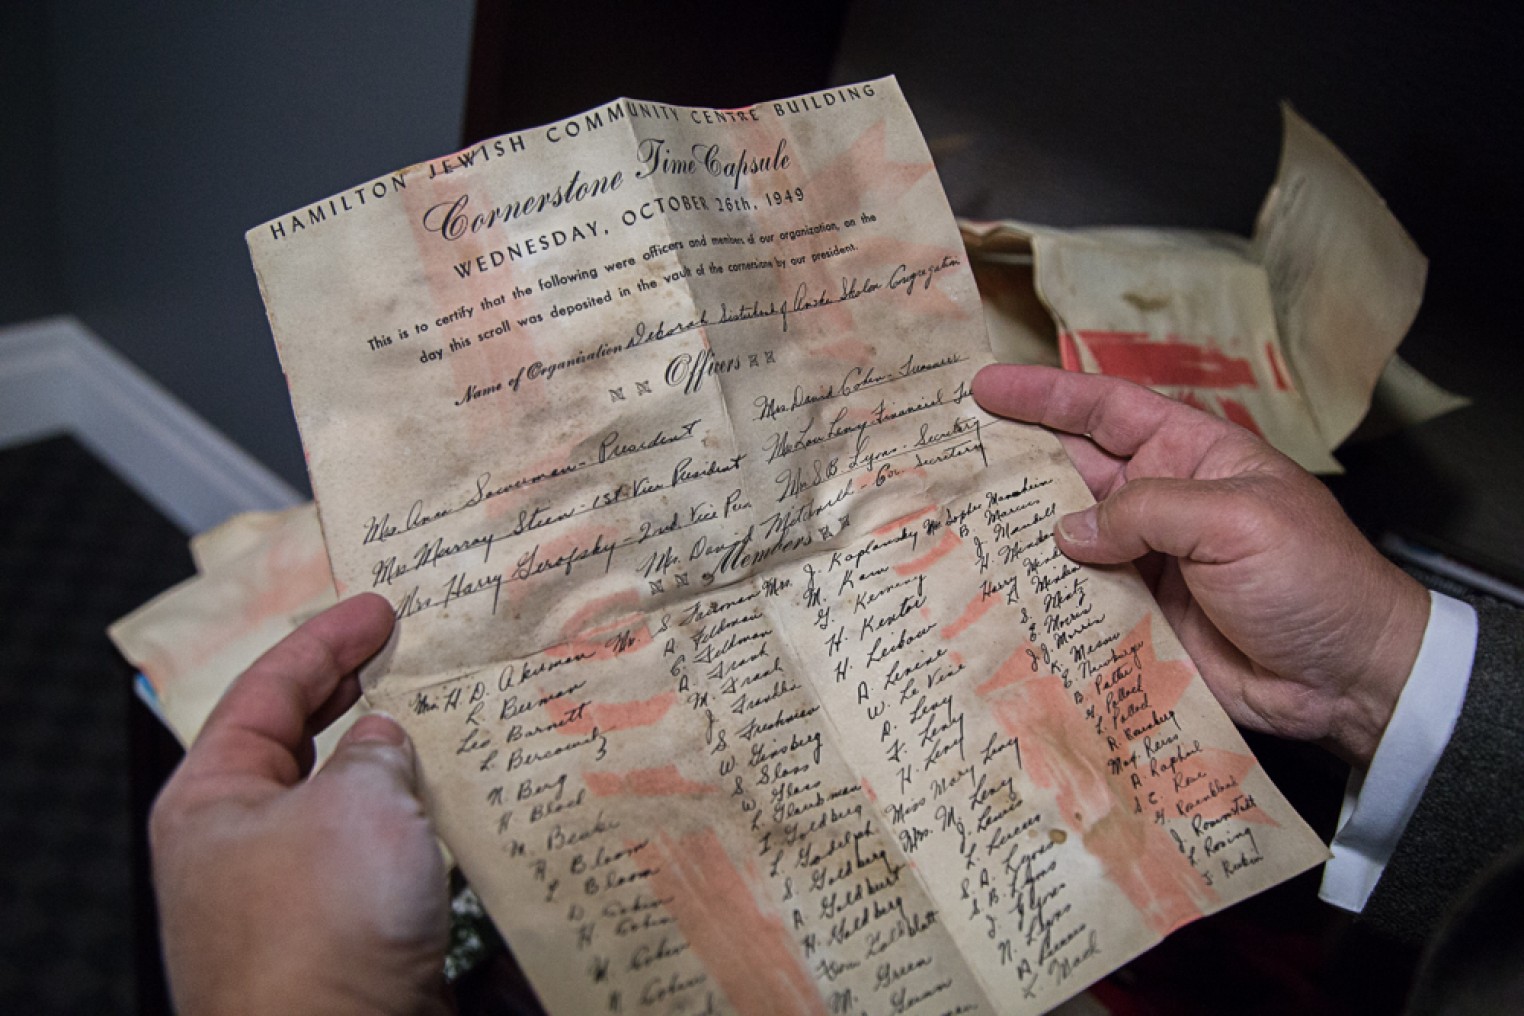 HAMILTON JEWISH COMMUNITY CENTRE BUILDING
Cornerstone Time Capsule
WEDNESDAY, OCTOBER 26th, 1949
This is to certify that the following were officers and members of our organization, on the
day this scroll was deposited in the vault of the cornerstone by our president.
Name of Organization Deborah Sisterhood of Anshe Sholom Congregation
Officers
Mrs Ann Sowerman - President
Mrs Murray Steen - 1st. Vice President
Mrs Harry Gerofsky - 2nd. Vice Pres
Mrs David Cohen - Treasurer
Mrs Lou Levy Financial
Mrs S.B. Lyons - Secretary
Mrs. David Mitchnell - Cor. Secretary
Members
Mrs H. D. Akerman
L. Berman
Leo Barnett
L. Bercovich
N. Berg
H. Bloch
M.
H. Bloom
L. Bloom
D. Cohen
H. Cohen
M. Cohen
N. Cohen
Mrs. S. Fairman
A. Feldman
E. Feldman
A. Frank
M. Frank
J. Franklin
S. Freshman
W. Ginsberg
S. Glass
W. Glass
L. Glaubman
I. Goldberg
L.
S. Goldberg
A. Goldburt
H. Goldberg
Goldblatt
M. Green
Mrs. J. Kaplansky
M. Karn
G. Kerning
H. Kentor
H. Leibow
A. Levine
W. Le Vine
D. Levy
F. Levy
H. Levy
Miss Mary Levy
Mrs. M. Levy
J. Lewis
L. Lucus
S. A. Lyons
S. B. Lyons
J. Lyons
N. Lyons
A.
L. Mach
Mrs Sophie Mannheim
B. Marcus
J. Mandell
H.
Harry
D.
S. Mintz
E. Morris
J. J. Morris
K.
E. Newberger
B.
G. Pollock
L. Pollock
A. Rosenberg
Max. Reiss
A. Raphael
S. E.
G. Rosenblood
J.
L. Rosing
J. Rubin